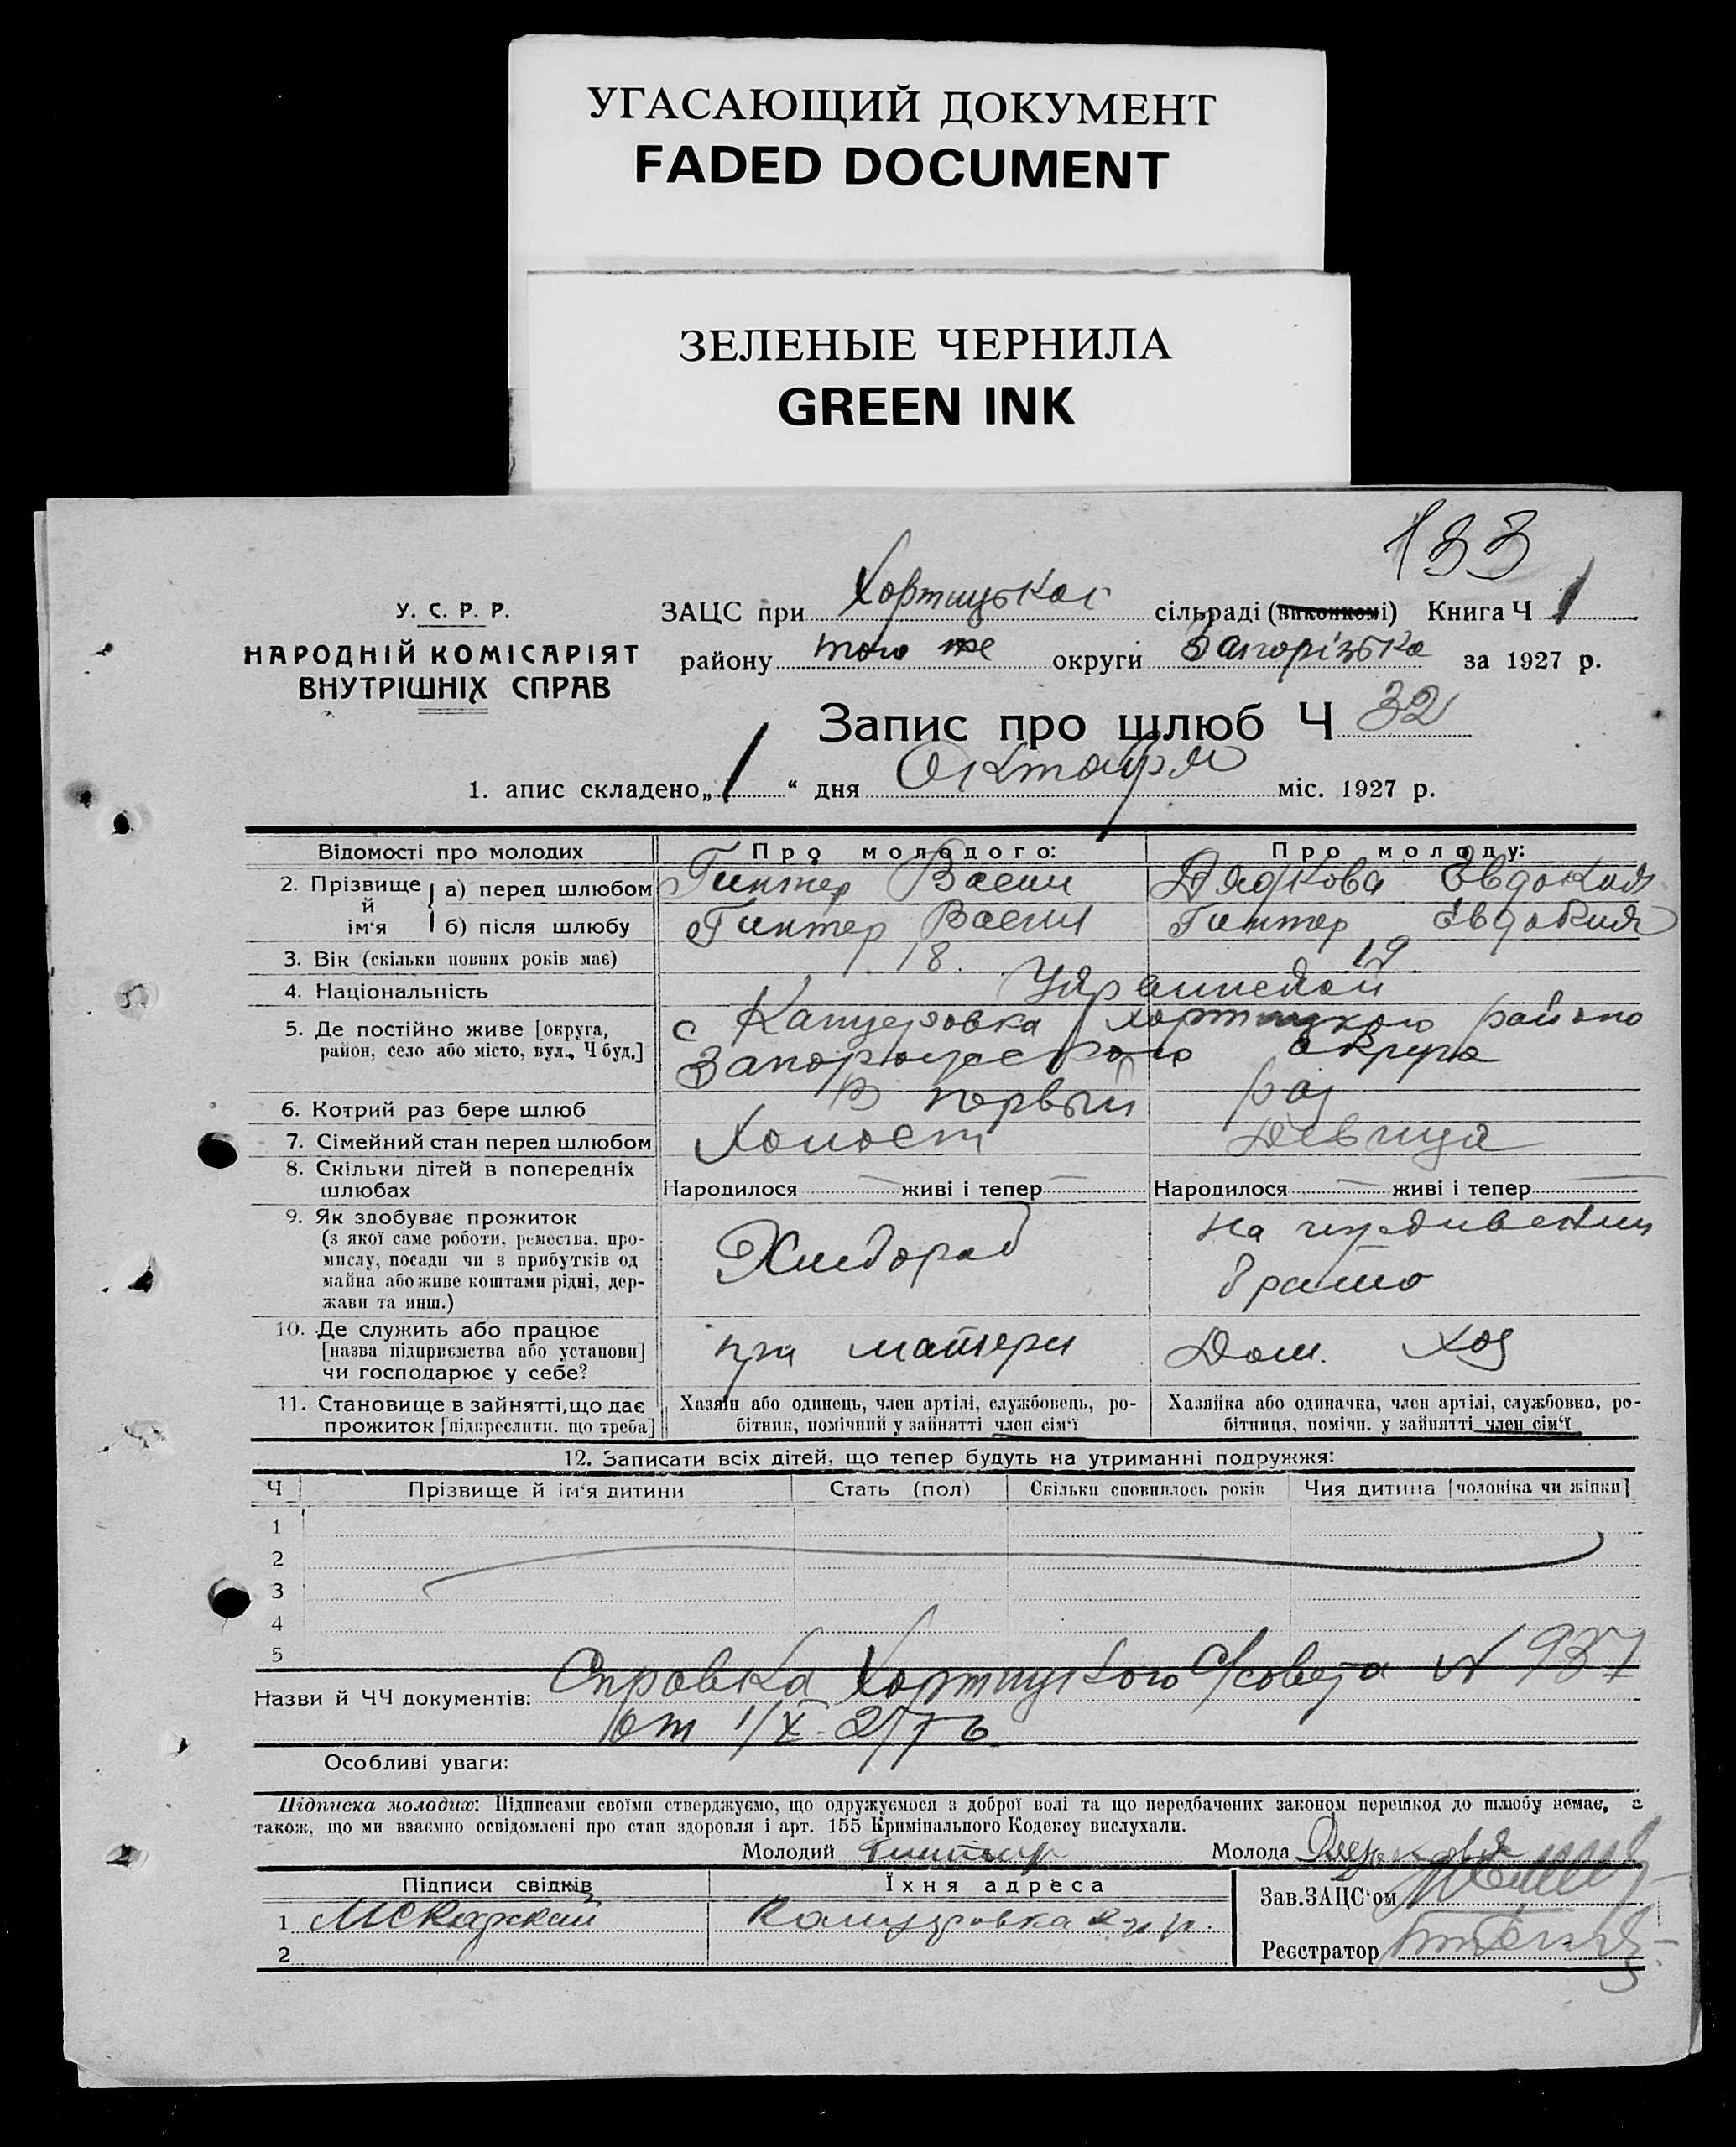 УГАСАЮЩИЙ ДОКУМЕНТ
FADED DOCUMENT
ЗЕЛЕНЫЕ ЧЕРНИЛА
GREEN INK
133
У. С. Р. Р.
НАРОДНІЙ КОМІСАРІЯТ
ВНУТРІШНІХ СПРАВ
ЗАЦС при Хортицькой сільраді (виконкомі) Книга Ч 1
району того же округи Запорізька за 1927 р.
Запис про шлюб Ч 32
1. апис складено „1“ дня Октября міс. 1927 р.
Відомості про молодих Про молодого: Про молоду:
2. Прізвище й ім‘я а) перед шлюбом Гинтер Васил Дядкова Евдокия
б) після шлюбу Гинтер Васил Гинтер Евдокия
3. Вік (скільки повних років має) 18. 19
4. Національність
5. Де постійно живе [округа, район, село або місто, вул., Ч буд.] с Канцеровка Хортицкого района
Запорожского округа
6. Котрий раз бере шлюб В первый раз
7. Сімейний стан перед шлюбом Холост Девица
8. Скільки дітей в попередніх шлюбах Народилося — живі і тепер — Народилося — живі і тепер —
9. Як здобуває прожиток
(з якої саме роботи, ремества, про-
мислу, посади чи з прибутків од
майна або живе коштами рідні, дер-
жави та инш.)
Хлебороб
на иждивении
брата
10. Де служить або працює
[назва підприємства або установи]
чи господарює у себе?
при матери Дом. Хоз
11. Становище в зайнятті, що дає
прожиток [підкреслити. що треба]
Хазяїн або одинець, член артілі, службовець, ро-
бітник, помічний у зайнятті член сім‘ї
Хазяйка або одиначка, член артілі, службовка, ро-
бітниця, помічн. у зайнятті член сім‘ї
12. Записати всіх дітей, що тепер будуть на утриманні подружжя:
Ч Прізвище й ім‘я дитини Стать (пол) Скільки сповнилось років Чия дитина [чоловіка чи жінки]
1
2
3
4
5
Назви й ЧЧ документів: Справка Хортицкого С/совета N 937
от 1/X-27 г
Особливі уваги:
Підписка молодих: Підписами своїми стверджуємо, що одружуємося з доброї волі та що передбачених законом перешкод до шлюбу немає, а
також, що ми взаємно освідомлені про стан здоровля і арт. 155 Кримінального Кодексу вислухали.
Молодий Гинтер Молода
Підписи свідків Їхня адреса Зав.ЗАЦС‘ом
1 Канцеровка
2 Реєстратор